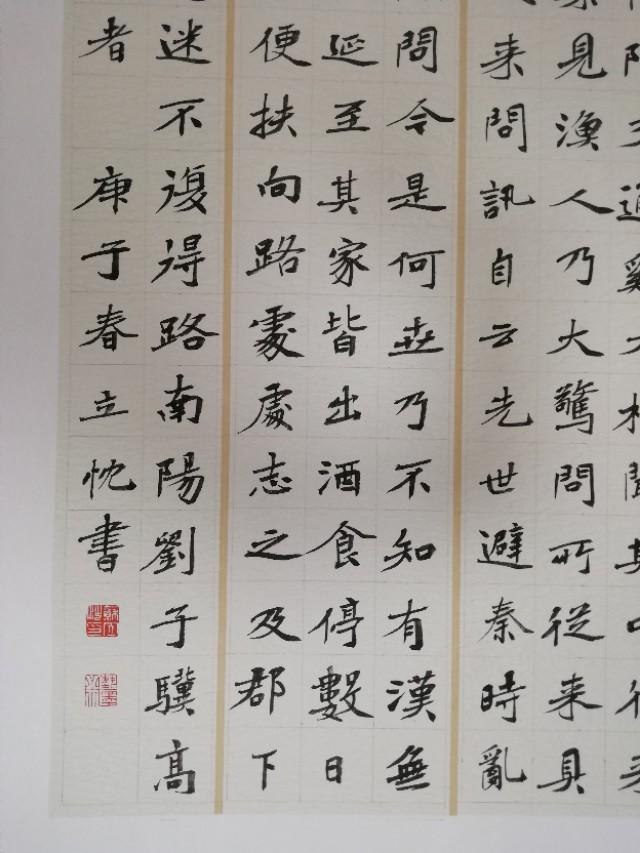 交通雞犬相聞其中往来
見漁人乃大驚問所從来具
来問訊自云先世避秦時亂
問今是何世乃不知有漢無
延至其家皆出酒食停數日
便扶向路處處志之及郡下
迷不復得路南陽劉子驥高
者 庚子春立忱書